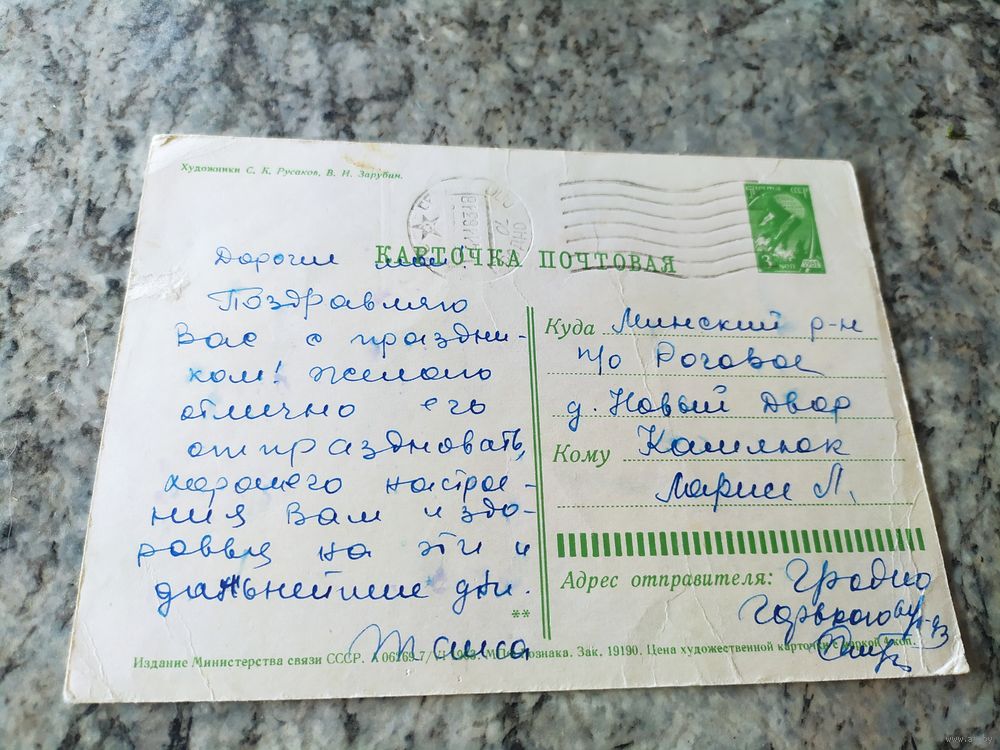 Художники С. К. Русаков, В. И. Зарубин.
КАРТОЧКА ПОЧТОВАЯ
3 КОП
Дорогие мои!
Поздравляю
Вас с праздни-
ком! Желаю
отлично его
отпраздновать,
хорошего настрое-
ния Вам и здо-
ровья на эти и
дальнейшие дни.
Таиса
Куда Минский р-н
п/о Роговое
д. Новый Двор
Кому
Ларисе Л.
Адрес отправителя: Гродно
Горького
Издание Министерства связи СССР. Зак. 19190. Цена художественной карточки с маркой 4 коп.